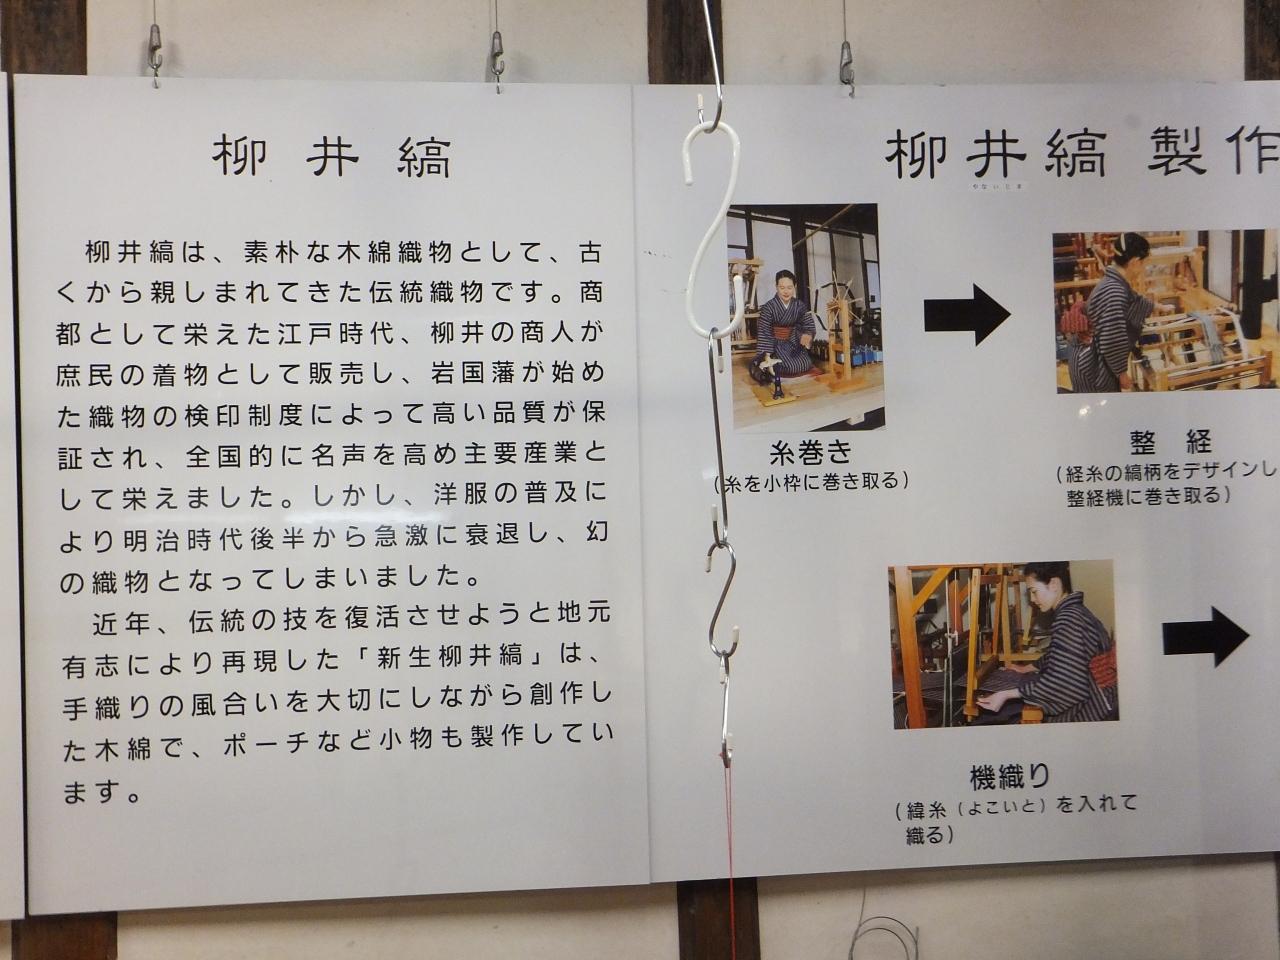 柳井縞
柳井縞は、素朴な木綿織物として、古
くから親しまれてきた伝統織物です。商
都として栄えた江戸時代、柳井の商人が
庶民の着物として販売し、岩国藩が始め
た織物の検印制度によって高い品質が保
証され、全国的に名声を高め主要産業と
して栄えました。しかし、洋服の普及に
より明治時代後半から急激に衰退し、幻
の織物となってしまいました。
近年、伝統の技を復活させようと地元
有志により再現した「新生柳井縞」は、
手織りの風合いを大切にしながら創作し
た木綿で、ポーチなど小物も製作してい
ます。
柳井縞 製作
やないじま
糸巻き
(糸を小枠に巻き取る)
整 経
(経糸の縞柄をデザインし
整経機に巻き取る)
機織り
(緯糸(よこいと)を入れて
織る)